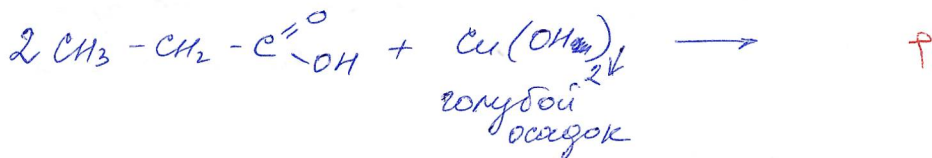 2 CH₃ – CH₂ – C(=O)–OH + Cu(OH)₂↓ ⟶
голубой
осадок